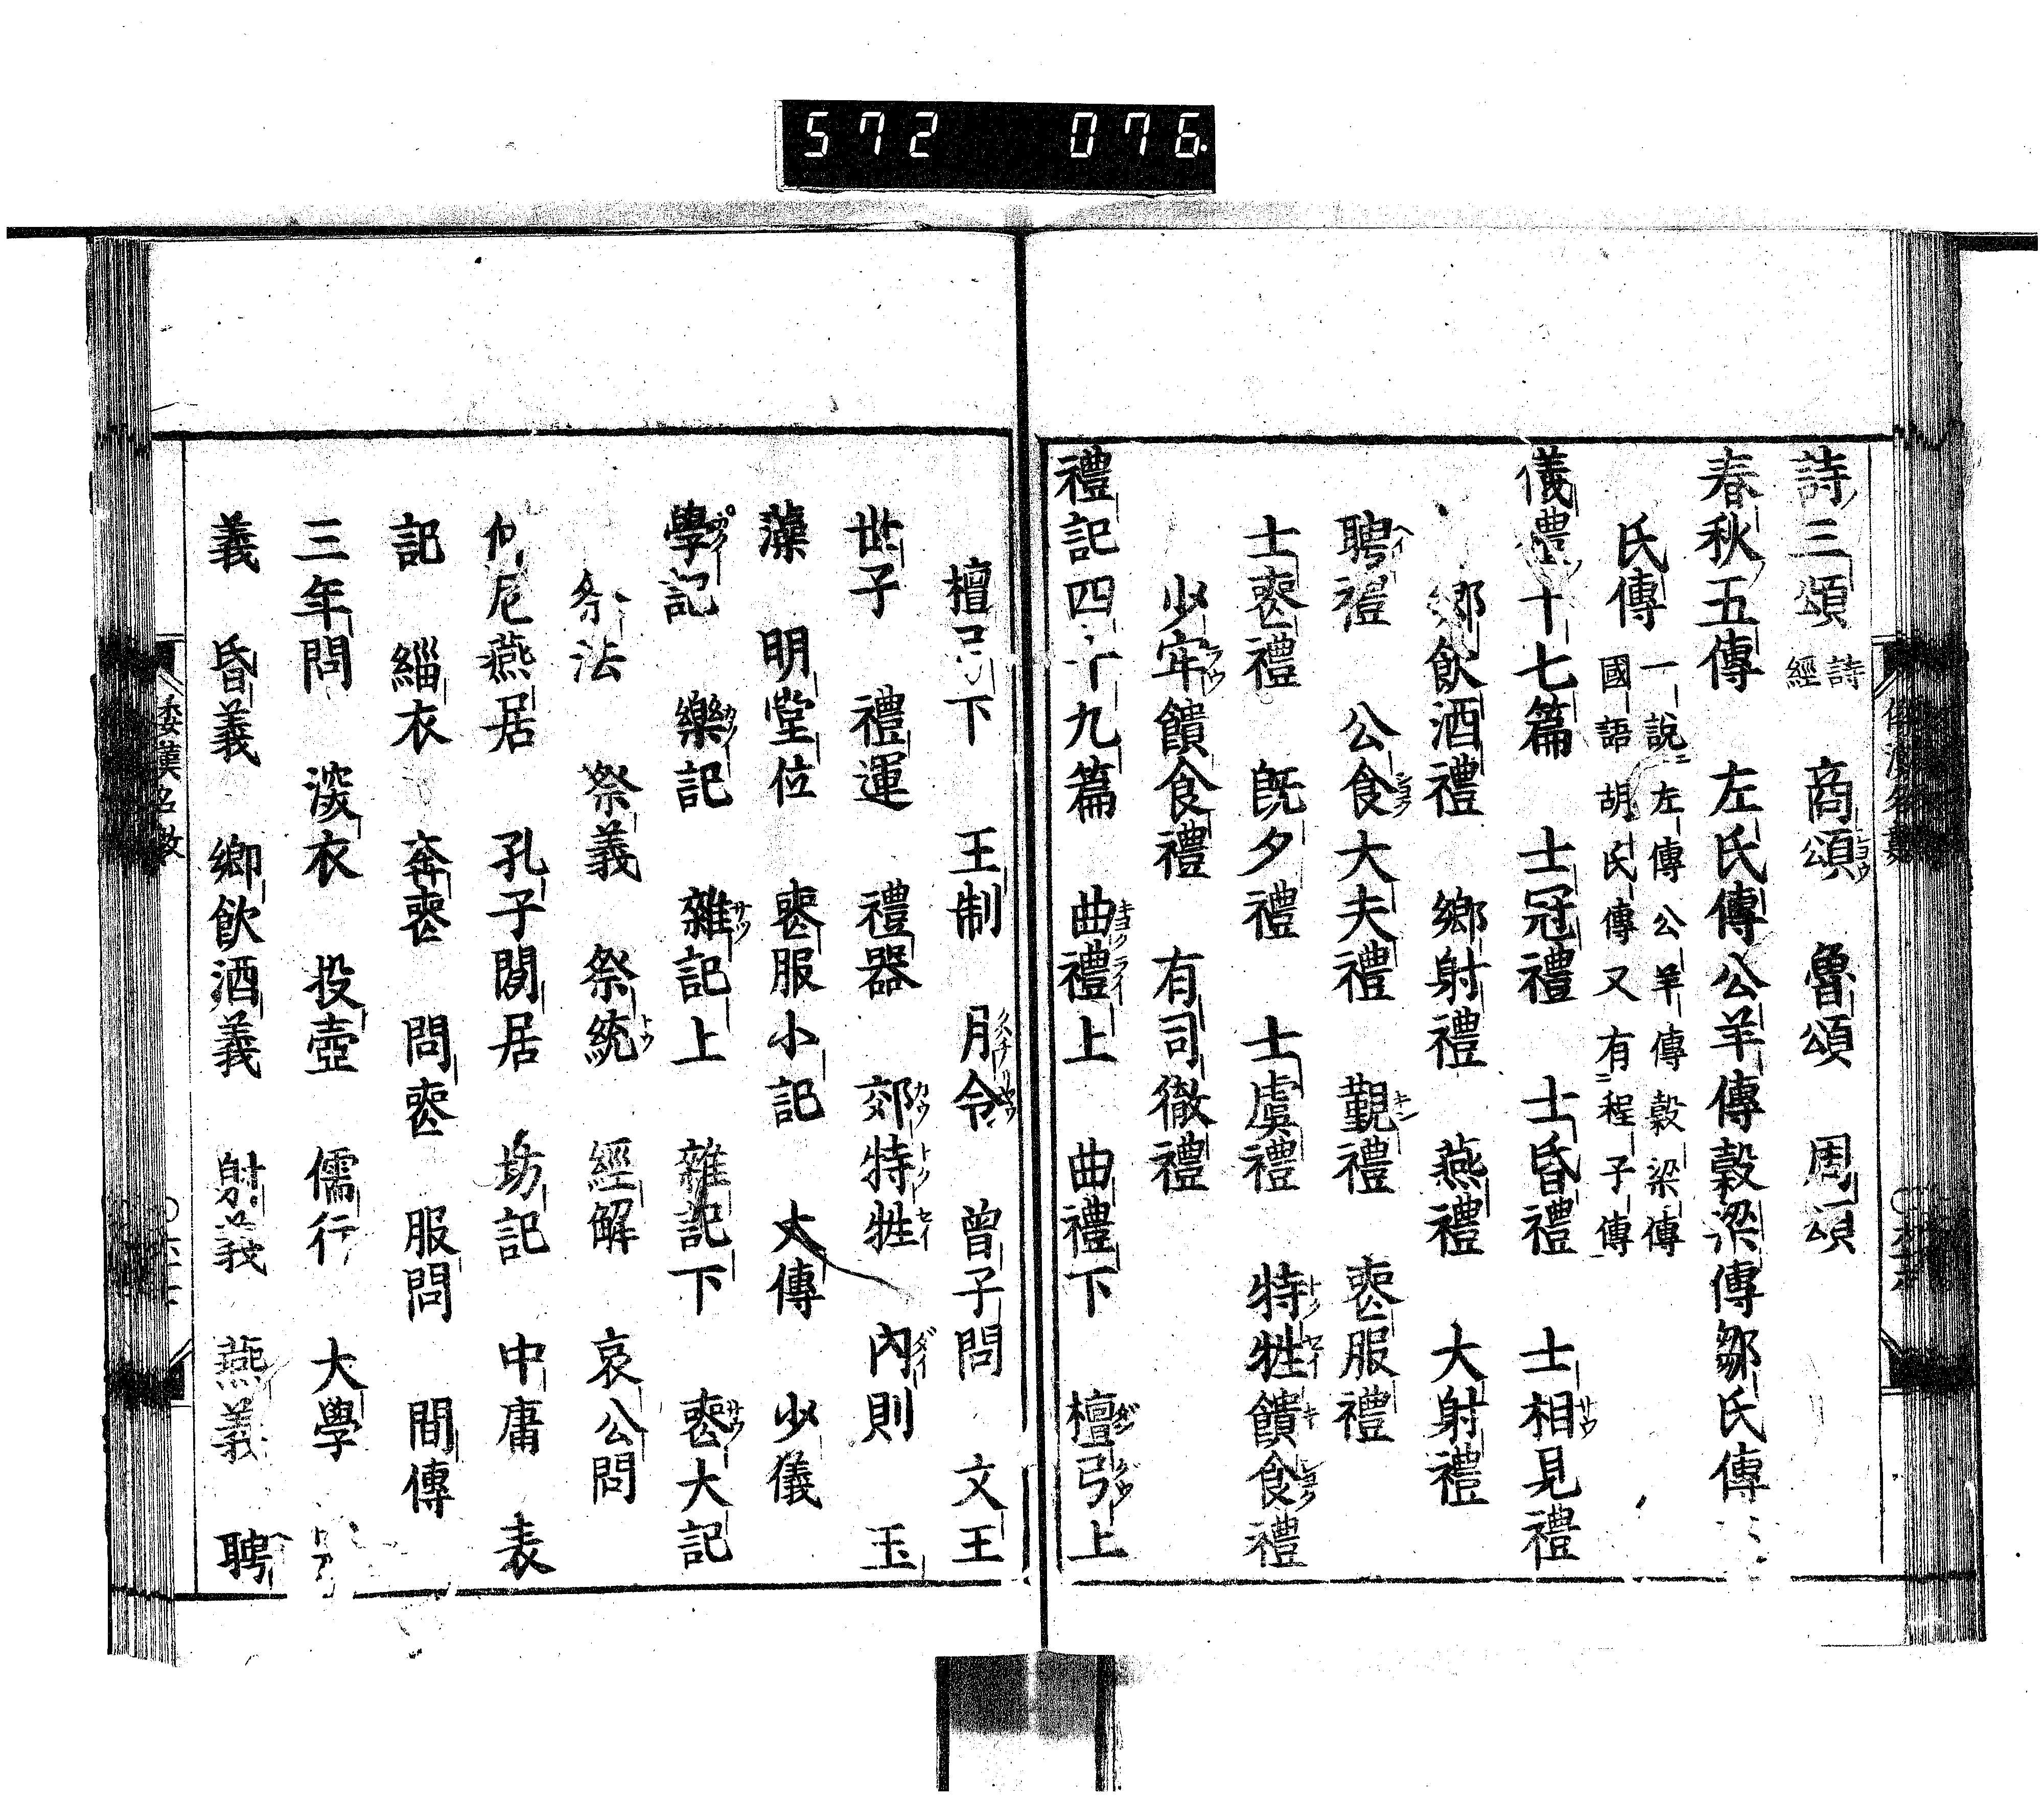 572 076.
詩三頌 詩經 商頌 魯頌 周頌
春秋五傳 左氏傳公羊傳穀梁傳鄒氏傳
氏傳 一說ニ左傳公羊傳穀梁傳
國語胡氏傳又有程子傳
儀禮十七篇 士冠禮 士昏禮 士相見禮
鄉飲酒禮 鄉射禮 燕禮 大射禮
聘禮 公食大夫禮 覲禮 喪服禮
士喪禮 既夕禮 士虞禮 特牲饋食禮
少牢饋食禮 有司徹禮
禮記四十九篇 曲禮上 曲禮下 檀弓上
檀弓下 王制 月令 曾子問 文王
世子 禮運 禮器 郊特牲 內則 玉
藻 明堂位 喪服小記 大傳 少儀
學記 樂記 雜記上 雜記下 喪大記
祭法 祭義 祭統 經解 哀公問
仲尼燕居 孔子閒居 坊記 中庸 表
記 緇衣 奔喪 問喪 服問 間傳
三年問 深衣 投壺 儒行 大學
義 昏義 鄉飲酒義 射義 燕義 聘